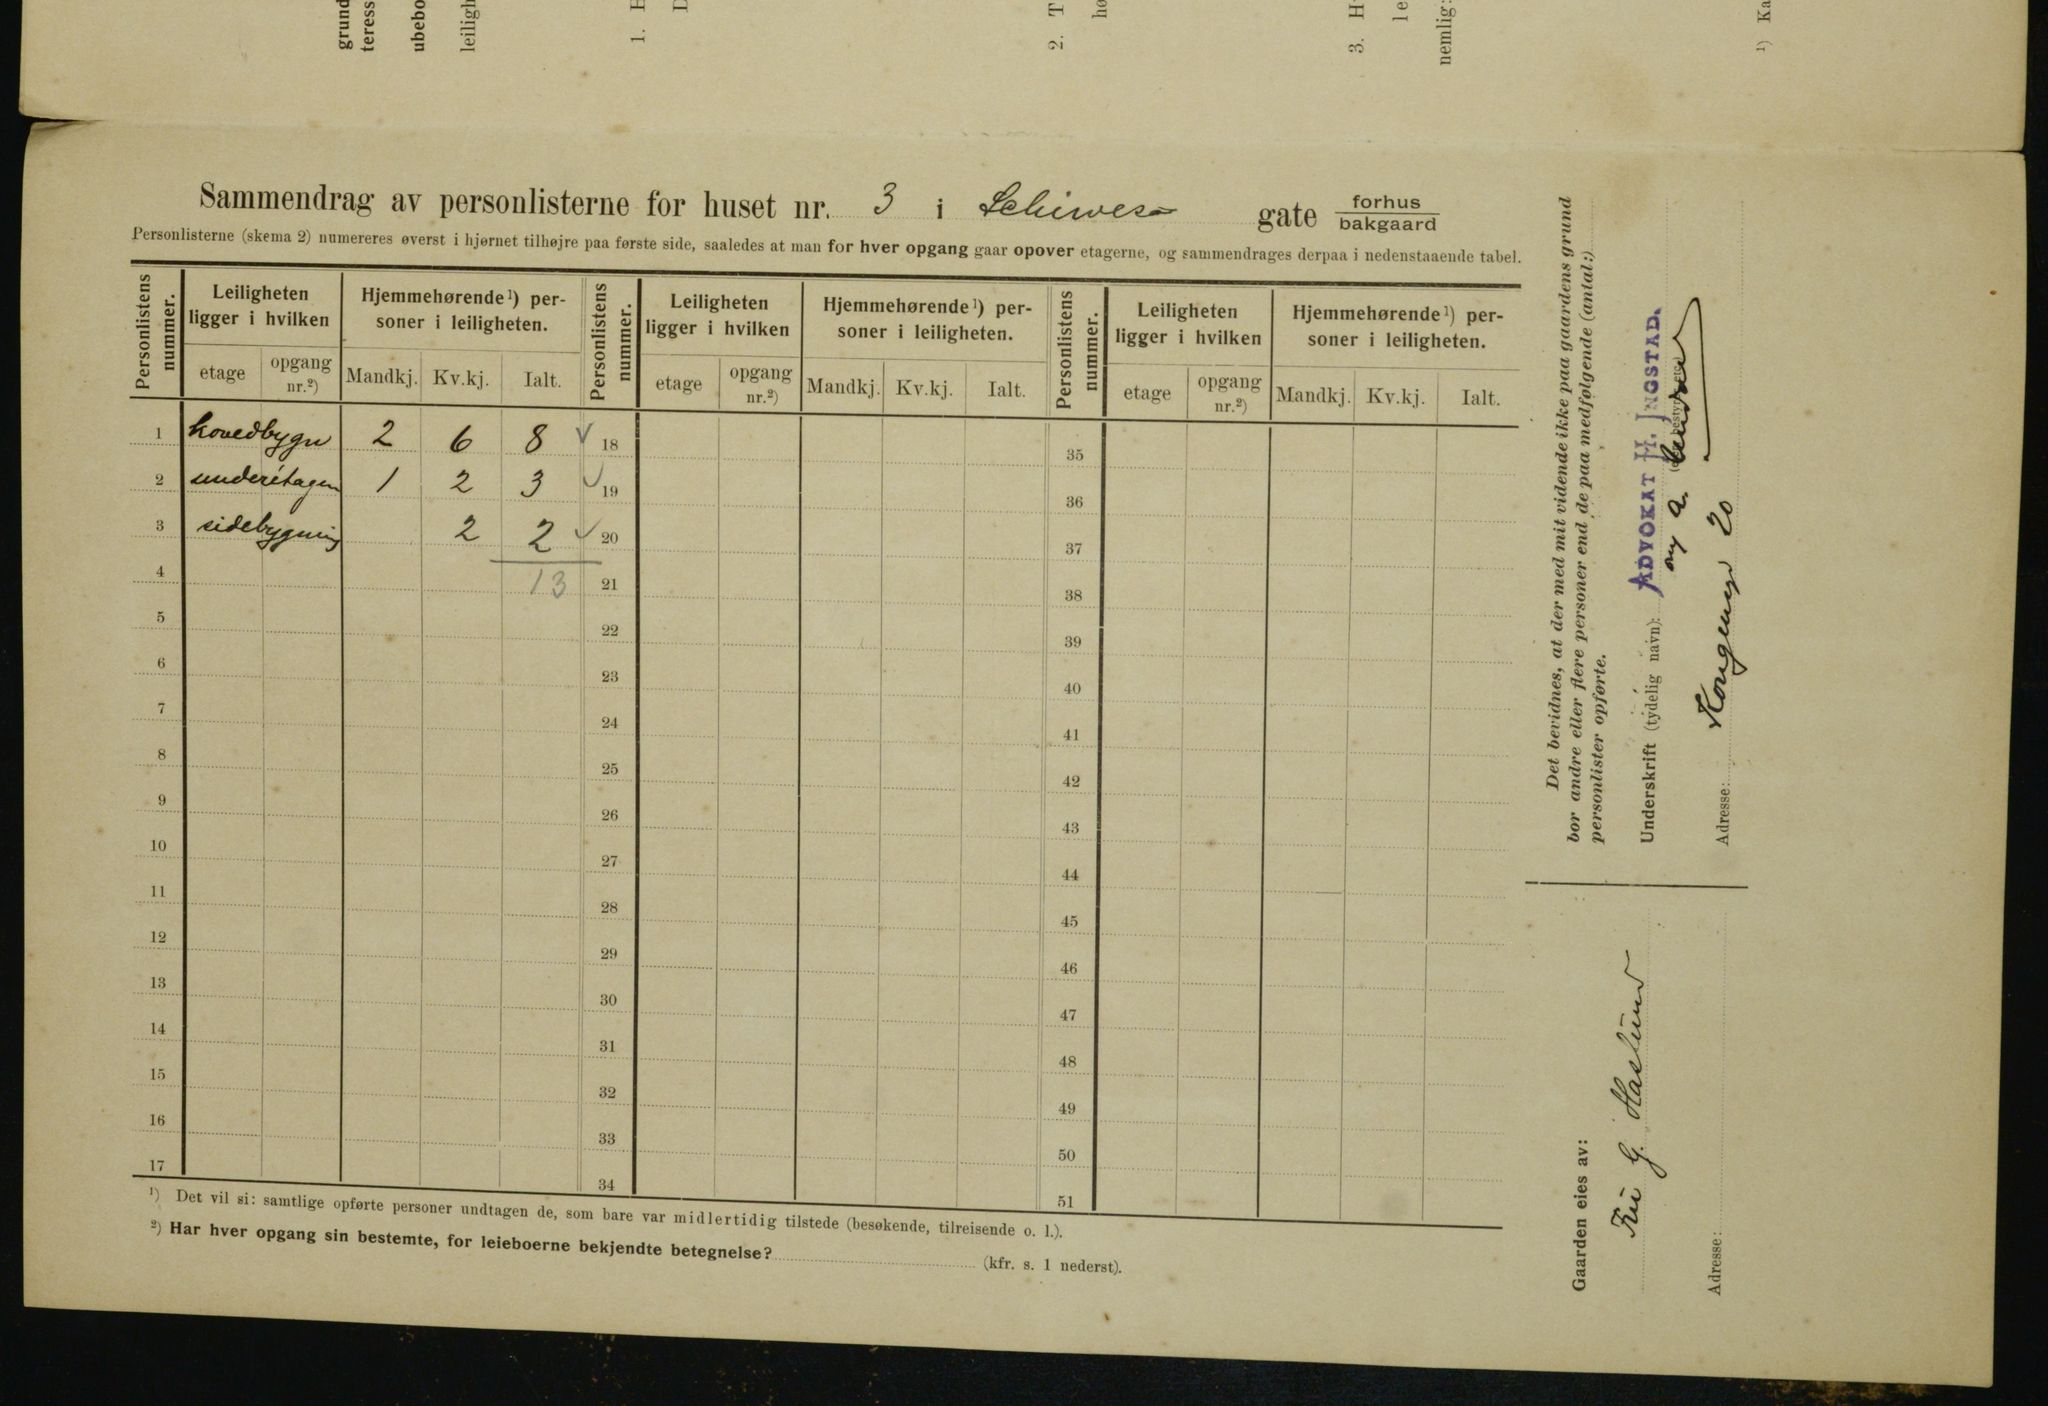 grund
teress
ubebo
leiligh
1. H
D
2. T
hø
3. H
le
nemlig:
¹) Ka
Sammendrag av personlisterne for huset nr. 3 i Schiwes gate forhus
bakgaard
Personlisterne (skema 2) numereres øverst i hjørnet tilhøjre paa første side, saaledes at man for hver opgang gaar opover etagerne, og sammendrages derpaa i nedenstaaende tabel.
Personlistens nummer. Leiligheten ligger i hvilken Hjemmehørende¹) personer i leiligheten. Personlistens nummer. Leiligheten ligger i hvilken Hjemmehørende¹) personer i leiligheten. Personlistens nummer. Leiligheten ligger i hvilken Hjemmehørende¹) personer i leiligheten.
etage opgang nr.²) Mandkj. Kv.kj. Ialt. etage opgang nr.²) Mandkj. Kv.kj. Ialt. etage opgang nr.²) Mandkj. Kv.kj. Ialt.
1 hovedbygn 2 6 8 ✓ 18 35
2 underétagen 1 2 3 ✓ 19 36
3 sidebygning 2 2 ✓ 20 37
4 13 21 38
5 22 39
6 23 40
7 24 41
8 25 42
9 26 43
10 27 44
11 28 45
12 29 46
13 30 47
14 31 48
15 32 49
16 33 50
17 34 51
¹) Det vil si: samtlige opførte personer undtagen de, som bare var midlertidig tilstede (besøkende, tilreisende o. l.).
²) Har hver opgang sin bestemte, for leieboerne bekjendte betegnelse? (kfr. s. 1 nederst).
Det bevidnes, at der med mit vidende ikke paa gaardens grund
bor andre eller flere personer end de paa medfølgende (antal:)
personlister opførte.
Underskrift (tydelig navn): ADVOKAT H. INGSTAD.
Adresse: Kongensg 20
Gaarden eies av:
G. Haslund
Adresse: